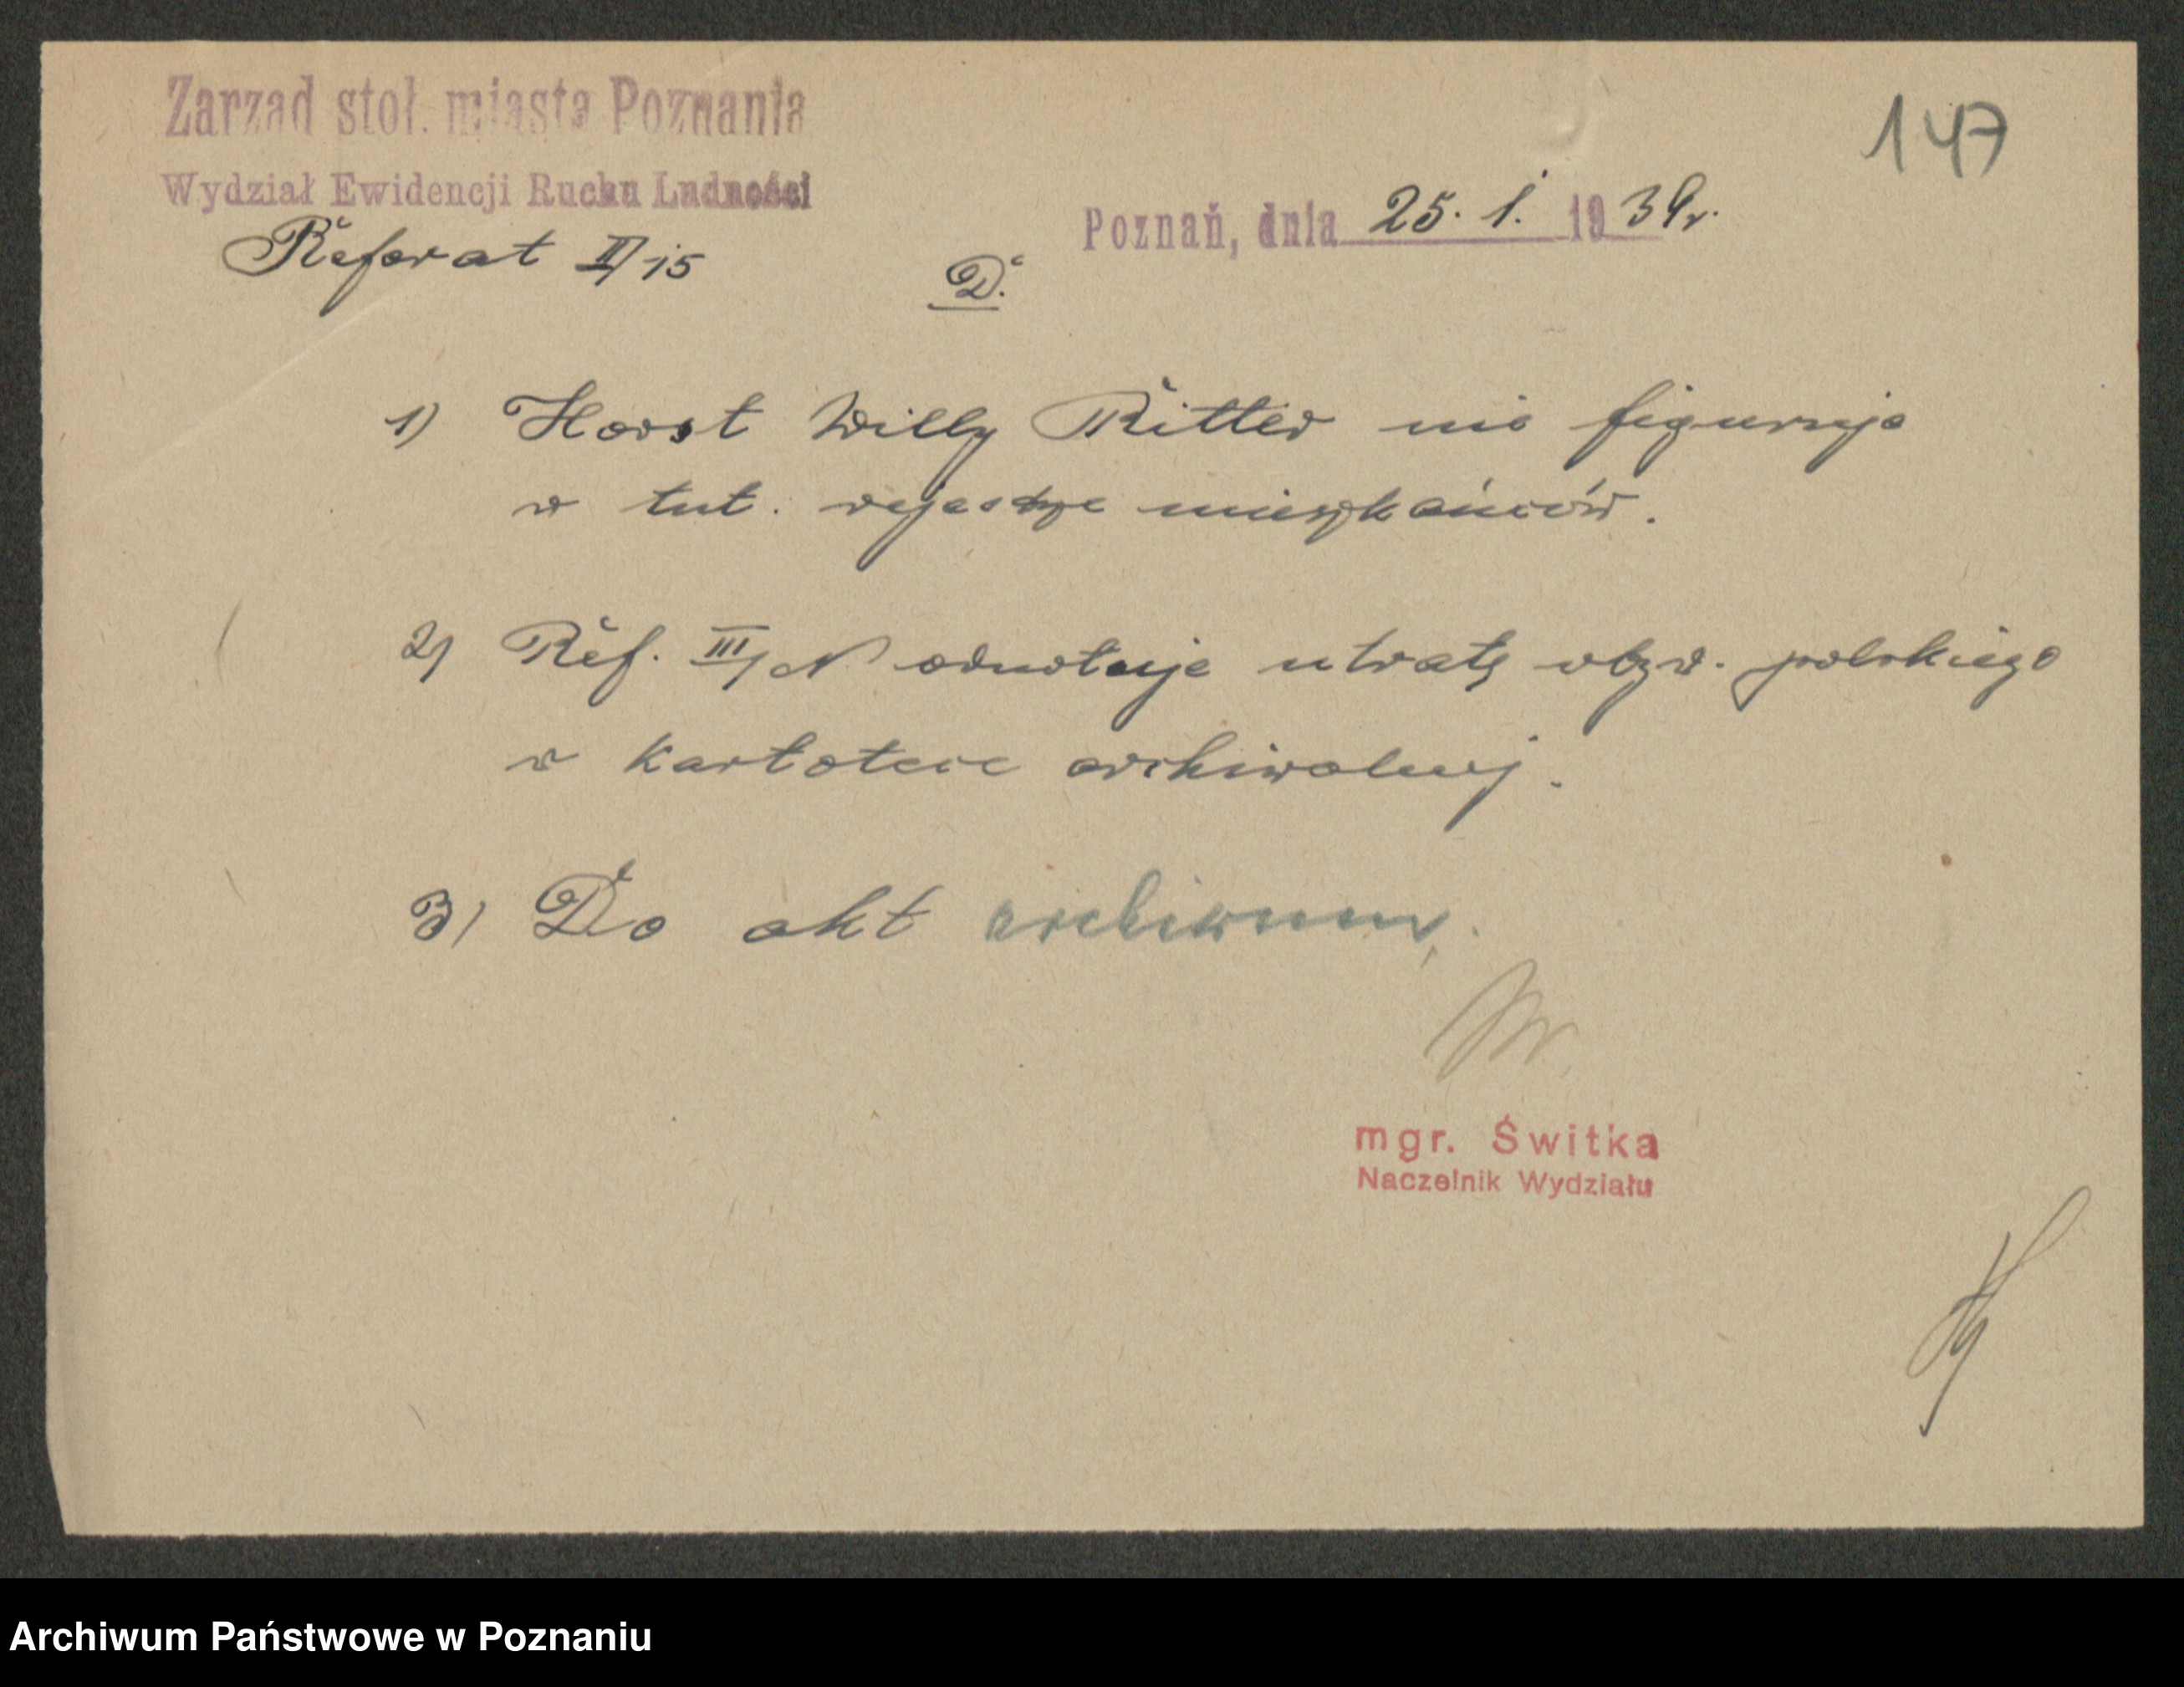 147
Zarząd stoł. miasta Poznania
Wydział Ewidencji Ruchu Ludności
Referat II/15
Poznań, dnia 25. 1. 1939r.
D.
1) Horst Willy Ritter nie figuruje
w tut. rejestrze mieszkańców.
2) Ref. III/N odnotuje utratę obyw. polskiego
w kartotece archiwalnej.
3) Do akt archiwum.
mgr. Świtka
Naczelnik Wydziału
Archiwum Państwowe w Poznaniu